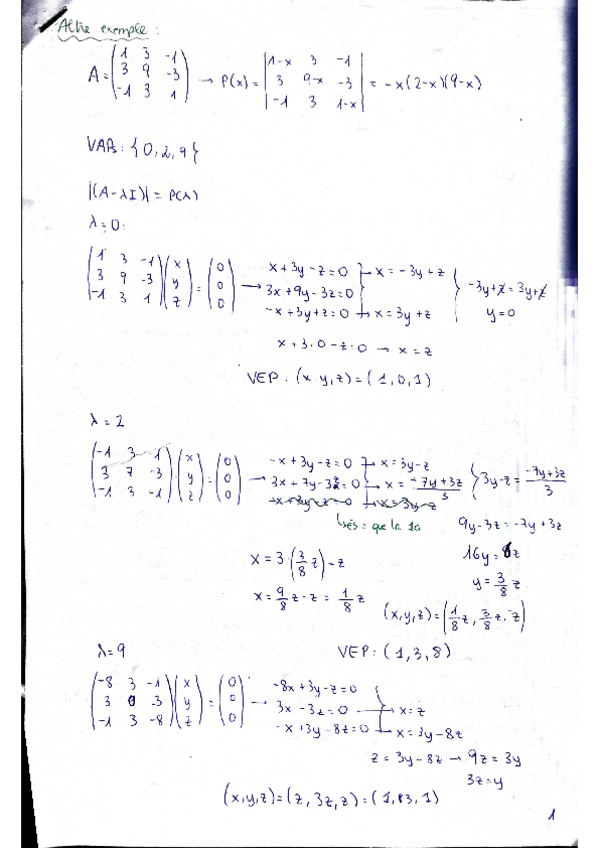 Altre exemple:
A = (1 3 -1; 3 9 -3; -1 3 1) → P(x) = |1-x 3 -1; 3 9-x -3; -1 3 1-x| = -x(2-x)(9-x)
VAPs: {0, 2, 9}
|(A - λI)| = P(λ)
λ = 0:
(1 3 -1; 3 9 -3; -1 3 1)(x; y; z) = (0; 0; 0) →
x + 3y - z = 0 → x = -3y + z
3x + 9y - 3z = 0
-x + 3y + z = 0 → x = 3y + z
-3y + z = 3y + z
y = 0
x + 3·0 - z = 0 → x = z
VEP: (x y, z) = (1, 0, 1)
λ = 2
(-1 3 -1; 3 7 -3; -1 3 -1)·(x; y; z) = (0; 0; 0) →
-x + 3y - z = 0 → x = 3y - z
3x + 7y - 3z = 0 → x = (-7y + 3z)/3
-x + 3y - z = 0 x = 3y - z
3y - z = (-7y + 3z)/3
és = que la 1a
9y - 3z = -7y + 3z
16y = 6z
y = 3/8 z
x = 3·(3/8 z) - z
x = 9/8 z - z = 1/8 z
(x, y, z) = (1/8 z, 3/8 z, z)
VEP: (1, 3, 8)
λ = 9
(-8 3 -1; 3 0 -3; -1 3 -8)(x; y; z) = (0; 0; 0) →
-8x + 3y - z = 0
3x - 3z = 0 → x = z
-x + 3y - 8z = 0 → x = 3y - 8z
z = 3y - 8z → 9z = 3y
3z = y
(x, y, z) = (z, 3z, z) = (1, 3, 1)
1